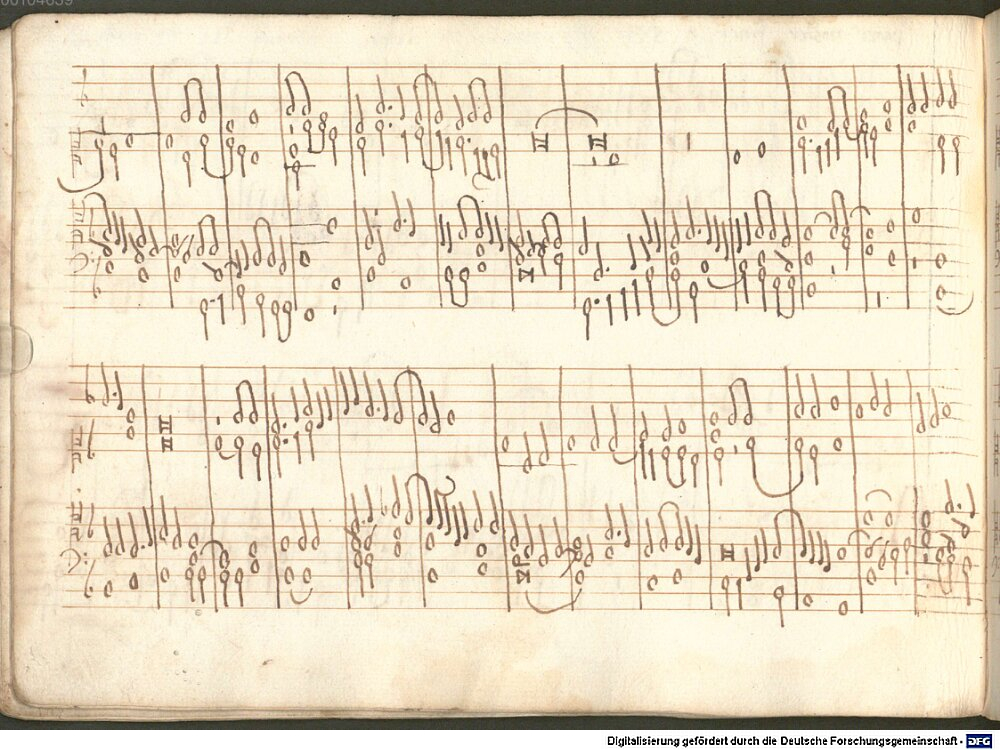 00104639
Digitalisierung gefördert durch die Deutsche Forschungsgemeinschaft - DFG